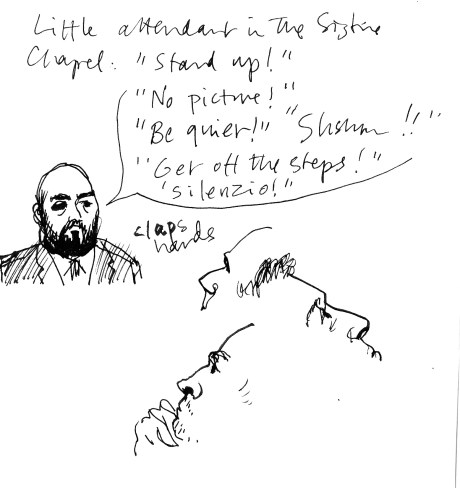 Little attendant in The Sistine
Chapel: "Stand up!"
"No picture!"
"Be quiet!" "Shshhh!!"
"Get off the steps!"
"silenzio!"
claps
hands